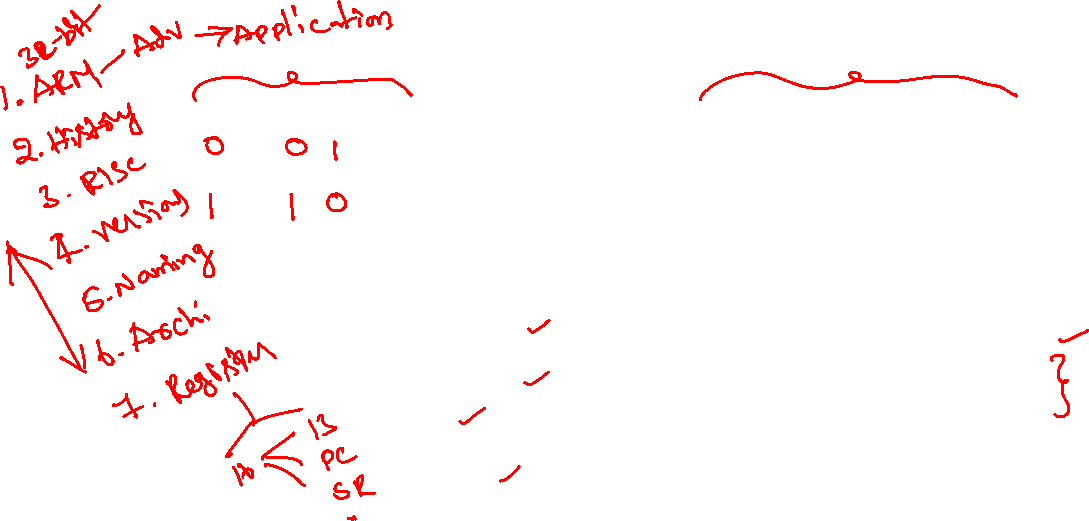 32-bit
1. ARM - Adv → Application
2. History
3. RISC
4. versions
5. Naming
6. Archi.
7. Registers
0 0 1
1 1 0
13
PC
SR